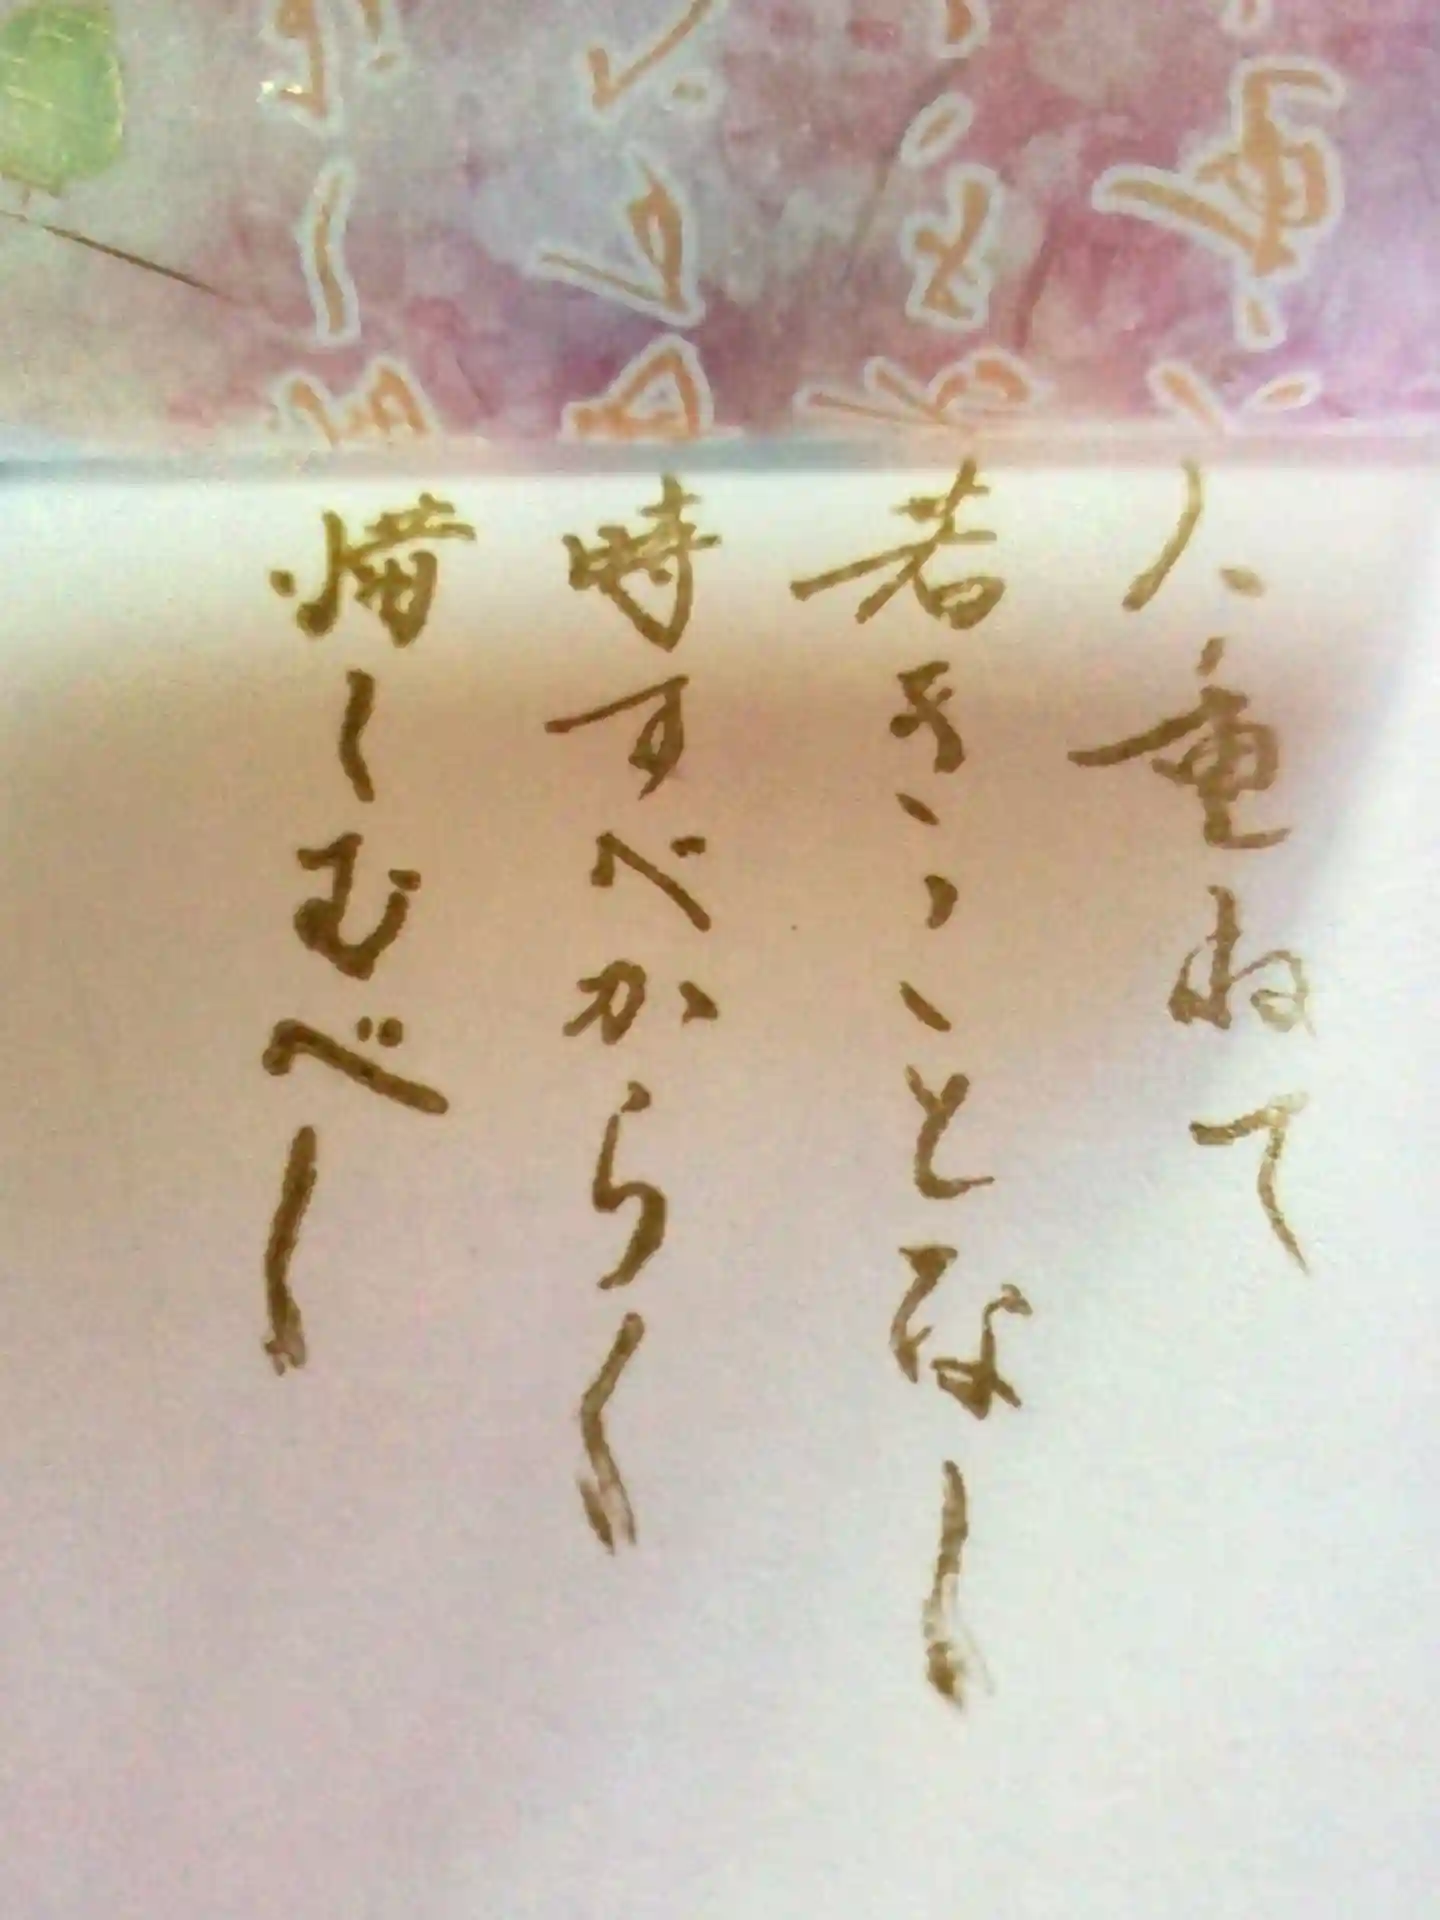 人重ねて
若きことなし
時すべからく
惜しむべし